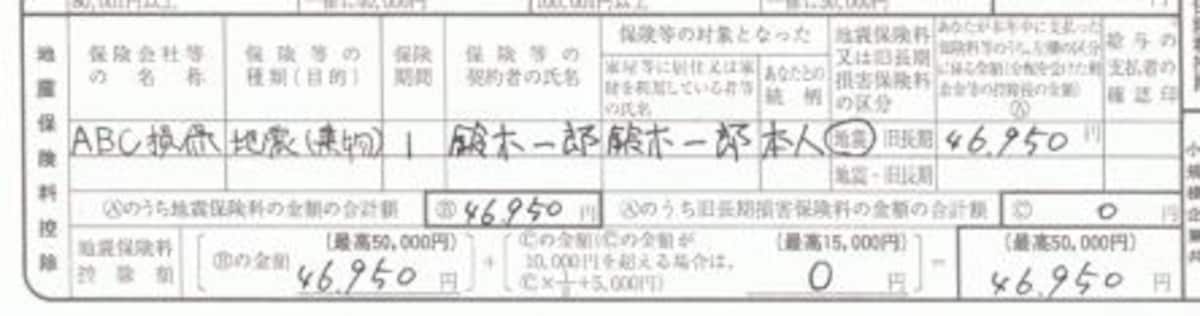 80,001円以上 一律40,000円 100,001円以上 一律50,000円
地震保険料控除
保険会社等の名称
保険等の種類(目的)
保険期間
保険等の契約者の氏名
保険等の対象となった
家屋等に居住又は家財を利用している者等の氏名
あなたとの続柄
地震保険料又は旧長期損害保険料の区分
あなたが本年中に支払った保険料等のうち、左欄の区分に係る金額(分配を受けた剰余金等の控除後の金額)
Ⓐ
給与の支払者の確認印
ABC損保 地震(建物) 1 鈴木一郎 鈴木一郎 本人 地震 旧長期 46,950 円
地震・旧長期
Ⓐのうち地震保険料の金額の合計額 Ⓑ 46,950 円 Ⓐのうち旧長期損害保険料の金額の合計額 Ⓒ 0 円
地震保険料控除額
Ⓑの金額
(最高50,000円)
46,950 円
+
Ⓒの金額(Ⓒの金額が
10,000円を超える場合は、
Ⓒ×1/2+5,000円)
(最高15,000円)
0 円
=
(最高50,000円)
46,950 円